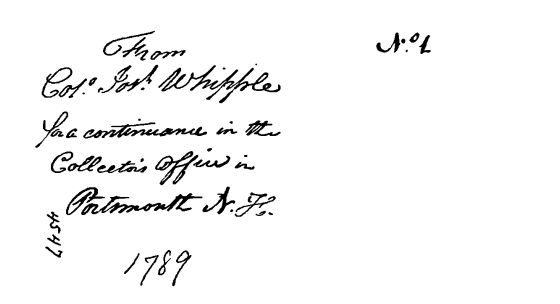 From
Colo. Josh. Whipple
for a continuance in the
Collectors office in
Portsmouth N. H.
1789
No. 1
4547